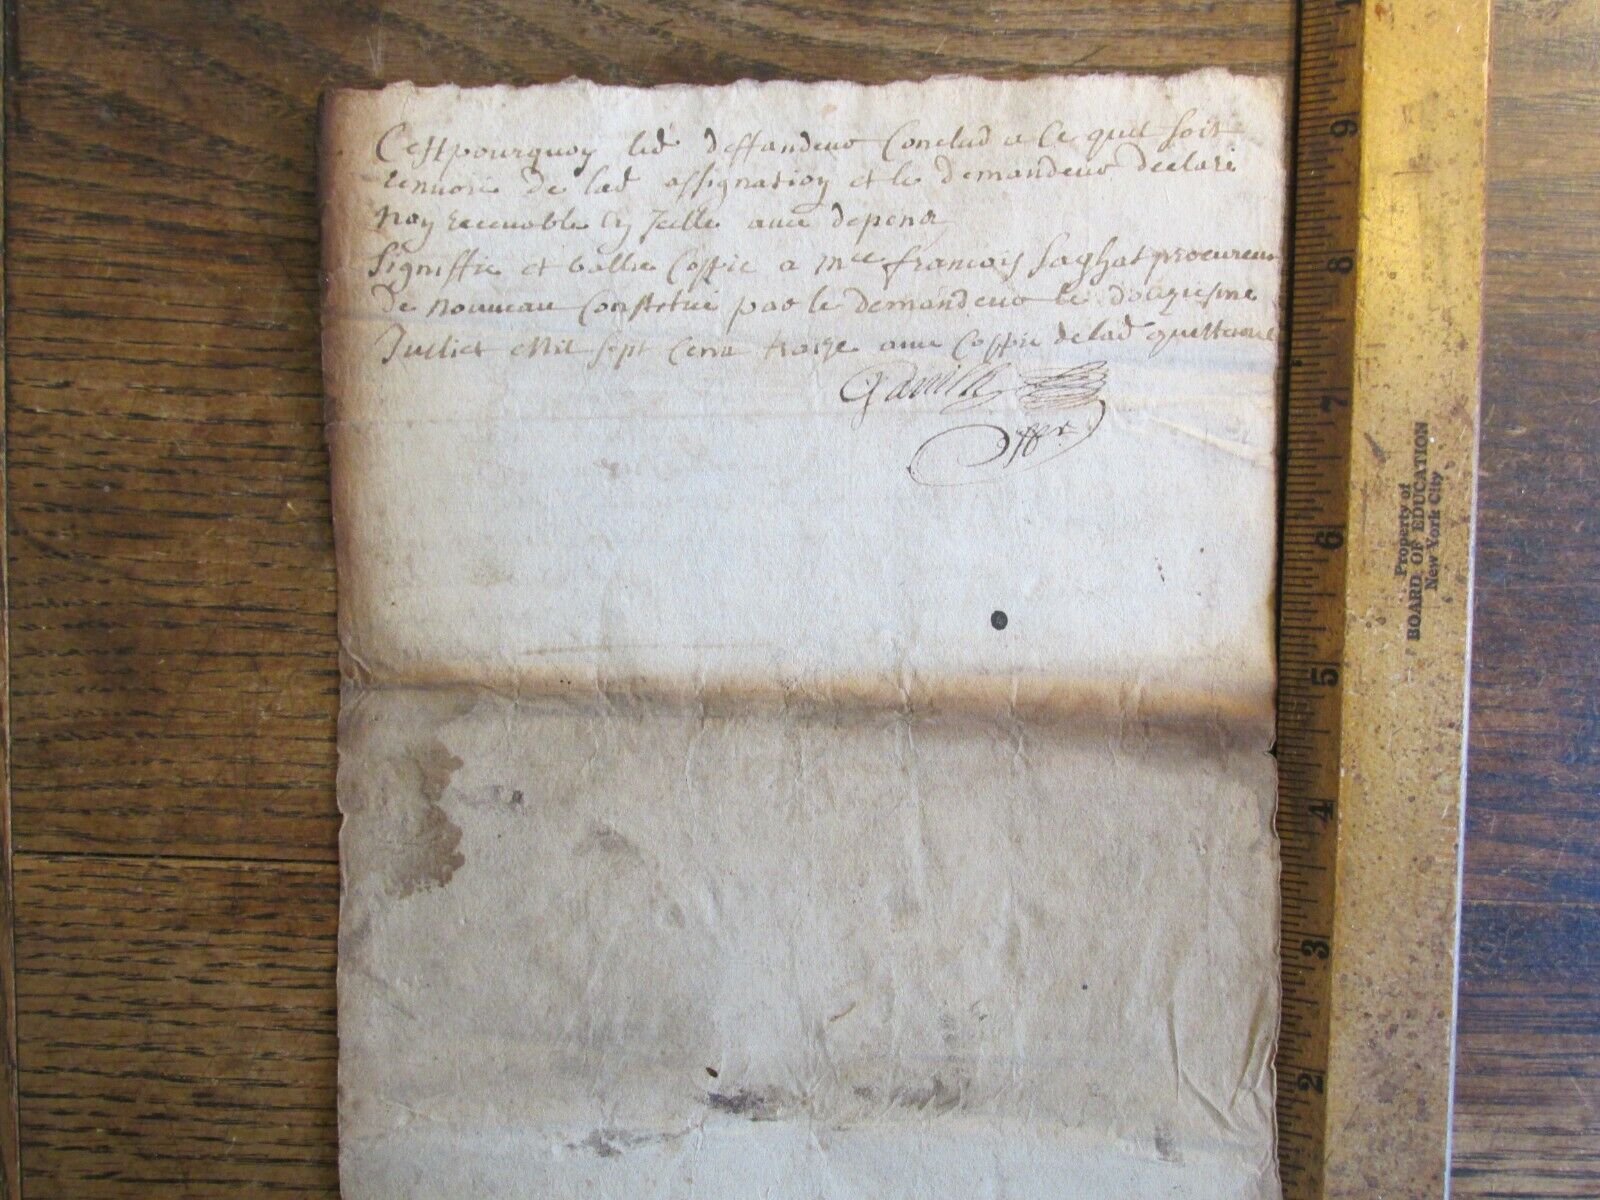 Cestpourquoy led deffandeur Conclud a Ce quil soit
renvoié de lad assignation et le demandeur declaré
non recevable en Icelle avec depens
Signiffié et baillé Coppie a Me francois Saghat procureur
de nouveau Constitué par le demandeur le douziesme
Juillet Mil sept Cens traize avec Coppie de lad
9
8
7
6
5
4
3
2
Property of
BOARD OF EDUCATION
New York City